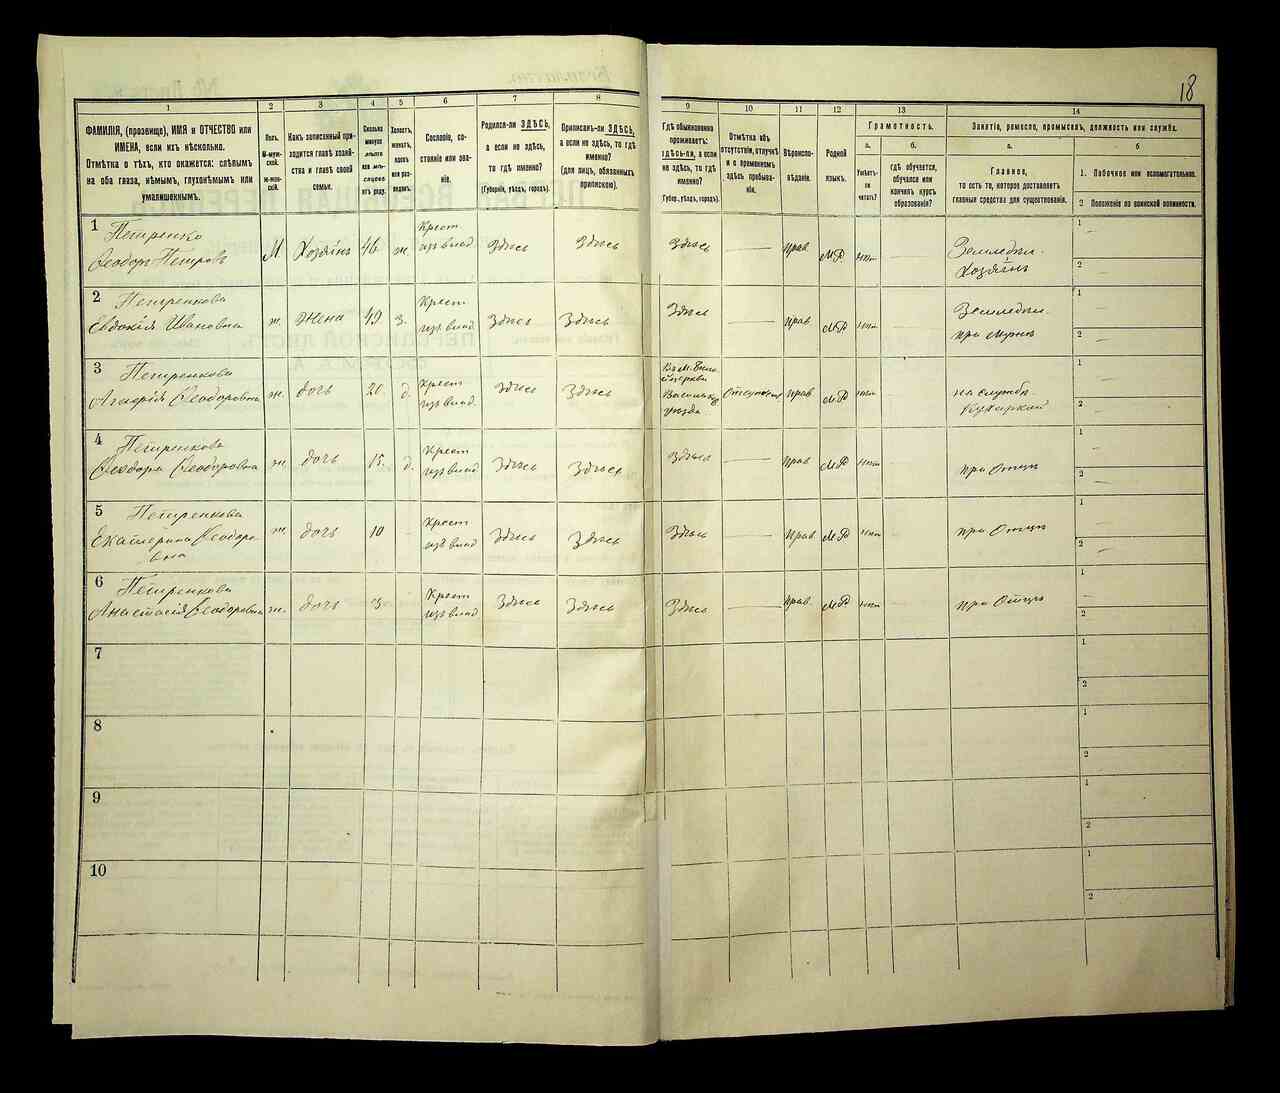 18
1
2
3
4
5
6
7
8
9
10
11
12
13
14
ФАМИЛІЯ, (прозвище), ИМЯ и ОТЧЕСТВО или
ИМЕНА, если ихъ нѣсколько.
Отмѣтка о тѣхъ, кто окажется: слѣпымъ
на оба глаза, нѣмымъ, глухонѣмымъ или
умалишеннымъ.
Полъ.
М-муж-
ской.
ж-жен-
скій.
Какъ записанный при-
ходится главѣ хозяй-
ства и главѣ своей
семьи.
Сколько
минуло
лѣтъ
или мѣ-
сяцевъ
отъ роду.
Холостъ,
женатъ,
вдовъ
или раз-
веденъ.
Сословіе, со-
стояніе или зва-
ніе.
Родился-ли ЗДѢСЬ,
а если не здѣсь,
то гдѣ именно?
(Губернія, уѣздъ, городъ).
Приписанъ-ли ЗДѢСЬ,
а если не здѣсь, то гдѣ
именно?
(для лицъ, обязанныхъ
припискою).
Гдѣ обыкновенно
проживаетъ:
здѣсь-ли, а если
не здѣсь, то гдѣ
именно?
(Губер., уѣздъ, городъ).
Отмѣтка объ
отсутствіи, отлучкѣ
и о временномъ
здѣсь пребыва-
ніи.
Вѣроиспо-
вѣданіе.
Родной
языкъ.
Грамотность.
а.
Умѣетъ-
ли
читать?
б.
гдѣ обучается,
обучался или
кончилъ курсъ
образованія?
Занятіе, ремесло, промыселъ, должность или служба.
а.
Главное,
то есть то, которое доставляетъ
главныя средства для существованія.
б
1. Побочное или вспомогательное.
2 Положеніе по воинской повинности.
1 Петренко
Ѳеодоръ Петровъ
М. Хозяинъ 46 ж.
Крест.
изъ влад.
Здѣсь Здѣсь Здѣсь — Прав. М.Р. нѣтъ —
Земледѣл.
Хозяинъ
1 —
2 —
2 Петренкова
Евдокія Ивановна
ж. Жена 49 з.
Крест
изъ влад.
Здѣсь Здѣсь Здѣсь — Прав М.Р нѣтъ
Земледѣл.
при мужѣ
1 —
2 —
3 Петренкова
Ѳеодоровна
ж. дочь 20 д.
Крест
изъ влад.
Здѣсь Здѣсь
Васильк.
уѣзда
Прав М.Р нѣтъ
на службѣ
1 —
2 —
4 Петренкова
Ѳеодора Ѳеодоровна
ж. дочь 15. д.
Крест
изъ влад.
Здѣсь Здѣсь Здѣсь — Прав М.Р нѣтъ
при Отцѣ
1 —
2 —
5 Петренкова
Екатерина Ѳеодоро
вна
ж. дочь 10 -
Крест
изъ влад
Здѣсь Здѣсь Здѣсь — Прав М.Р нѣтъ
при Отцѣ
1 —
2 —
6 Петренкова
Анастасія Ѳеодоровна
ж. дочь 3 -
Крест
изъ влад
Здѣсь Здѣсь Здѣсь — Прав. М.Р нѣтъ
при Отцѣ
1
2
7
1
2
8
1
2
9
1
2
10
1
2